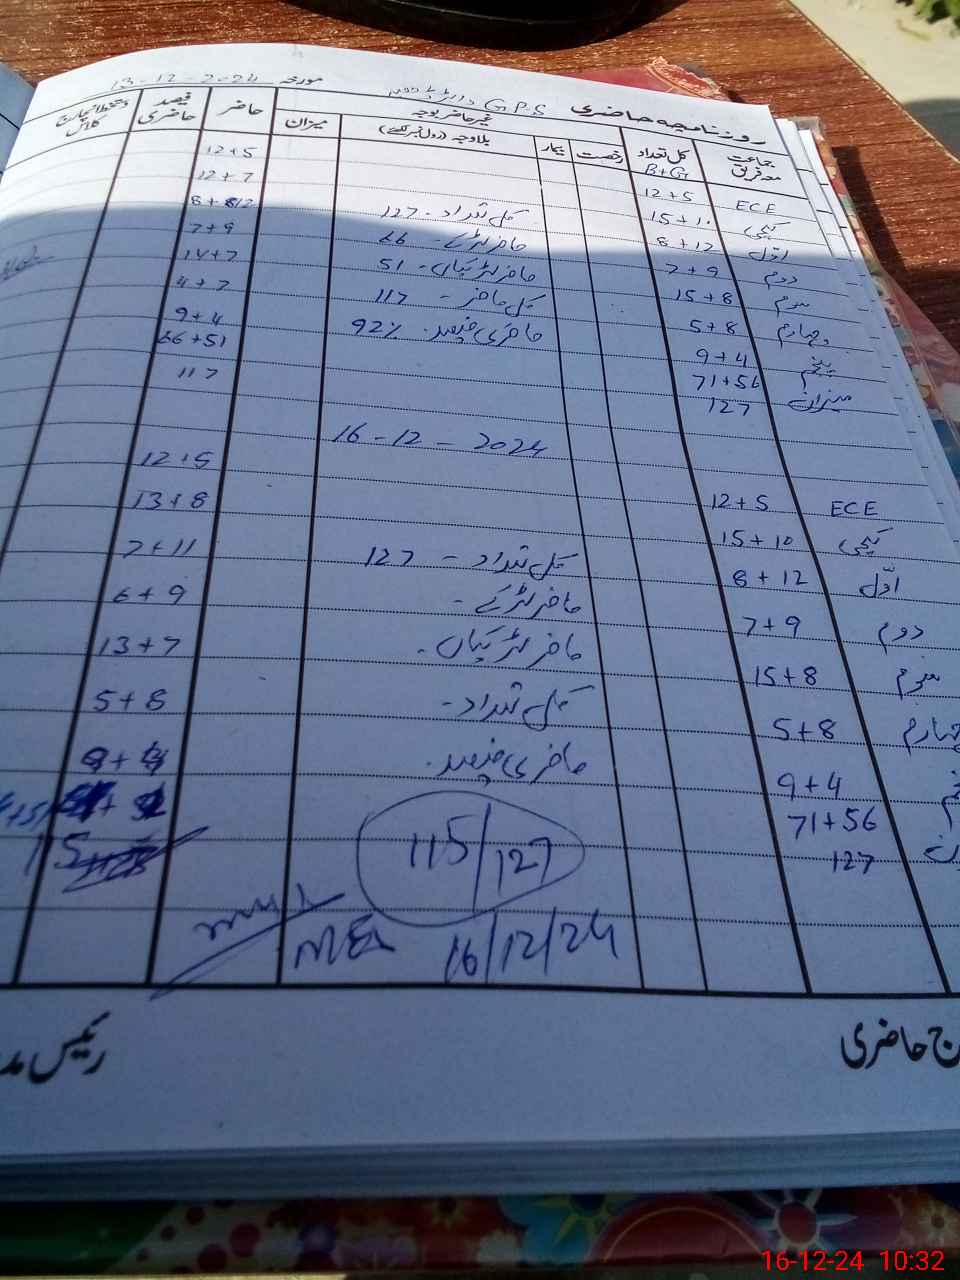 روزنامچہ حاضری G.P.S مورخہ 13-12-2024
جماعت معہ فریق کل تعداد B+G رخصت بیمار غیر حاضر بوجہ بلاوجہ (رول نمبر لکھیے) میزان حاضر فیصد حاضری
ECE 12+5 12+5
کچی 15+10 12+7
اوّل 8+12 کل تعداد - 127 8+12
دوم 7+9 حاضر لڑکے - 66 7+9
سوم 15+8 حاضر لڑکیاں - 51 14+7
چہارم 5+8 کل حاضر - 117 4+7
پنجم 9+4 حاضری فیصد 92% 9+4
میزان 71+56 66+51
127 117
16-12-2024
ECE 12+5 12+5
کچی 15+10 13+8
اوّل 8+12 کل تعداد - 127 7+11
دوم 7+9 حاضر لڑکے - 6+9
سوم 15+8 حاضر لڑکیاں - 13+7
چہارم 5+8 کل تعداد - 5+8
9+4 حاضری فیصد 9+4
71+56
127
115/127
16/12/24
رئیس مد
ج حاضری
16-12-24 10:32